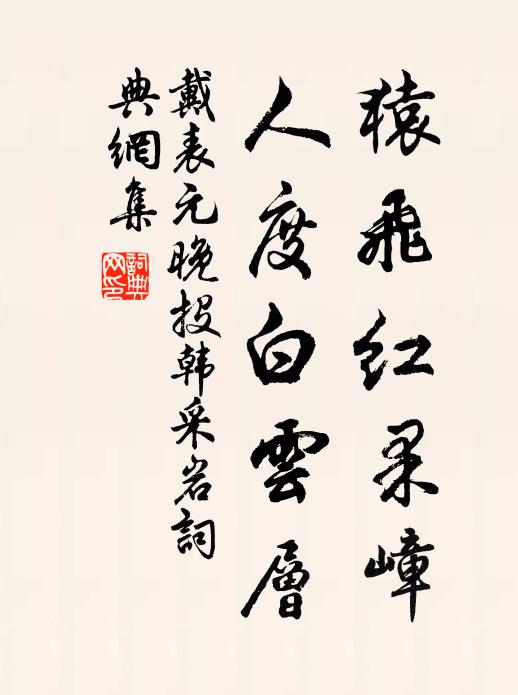 猿飛红果嶂
人度白雲層
戴表元晚投韩采岩詞
典網集
詞典网印